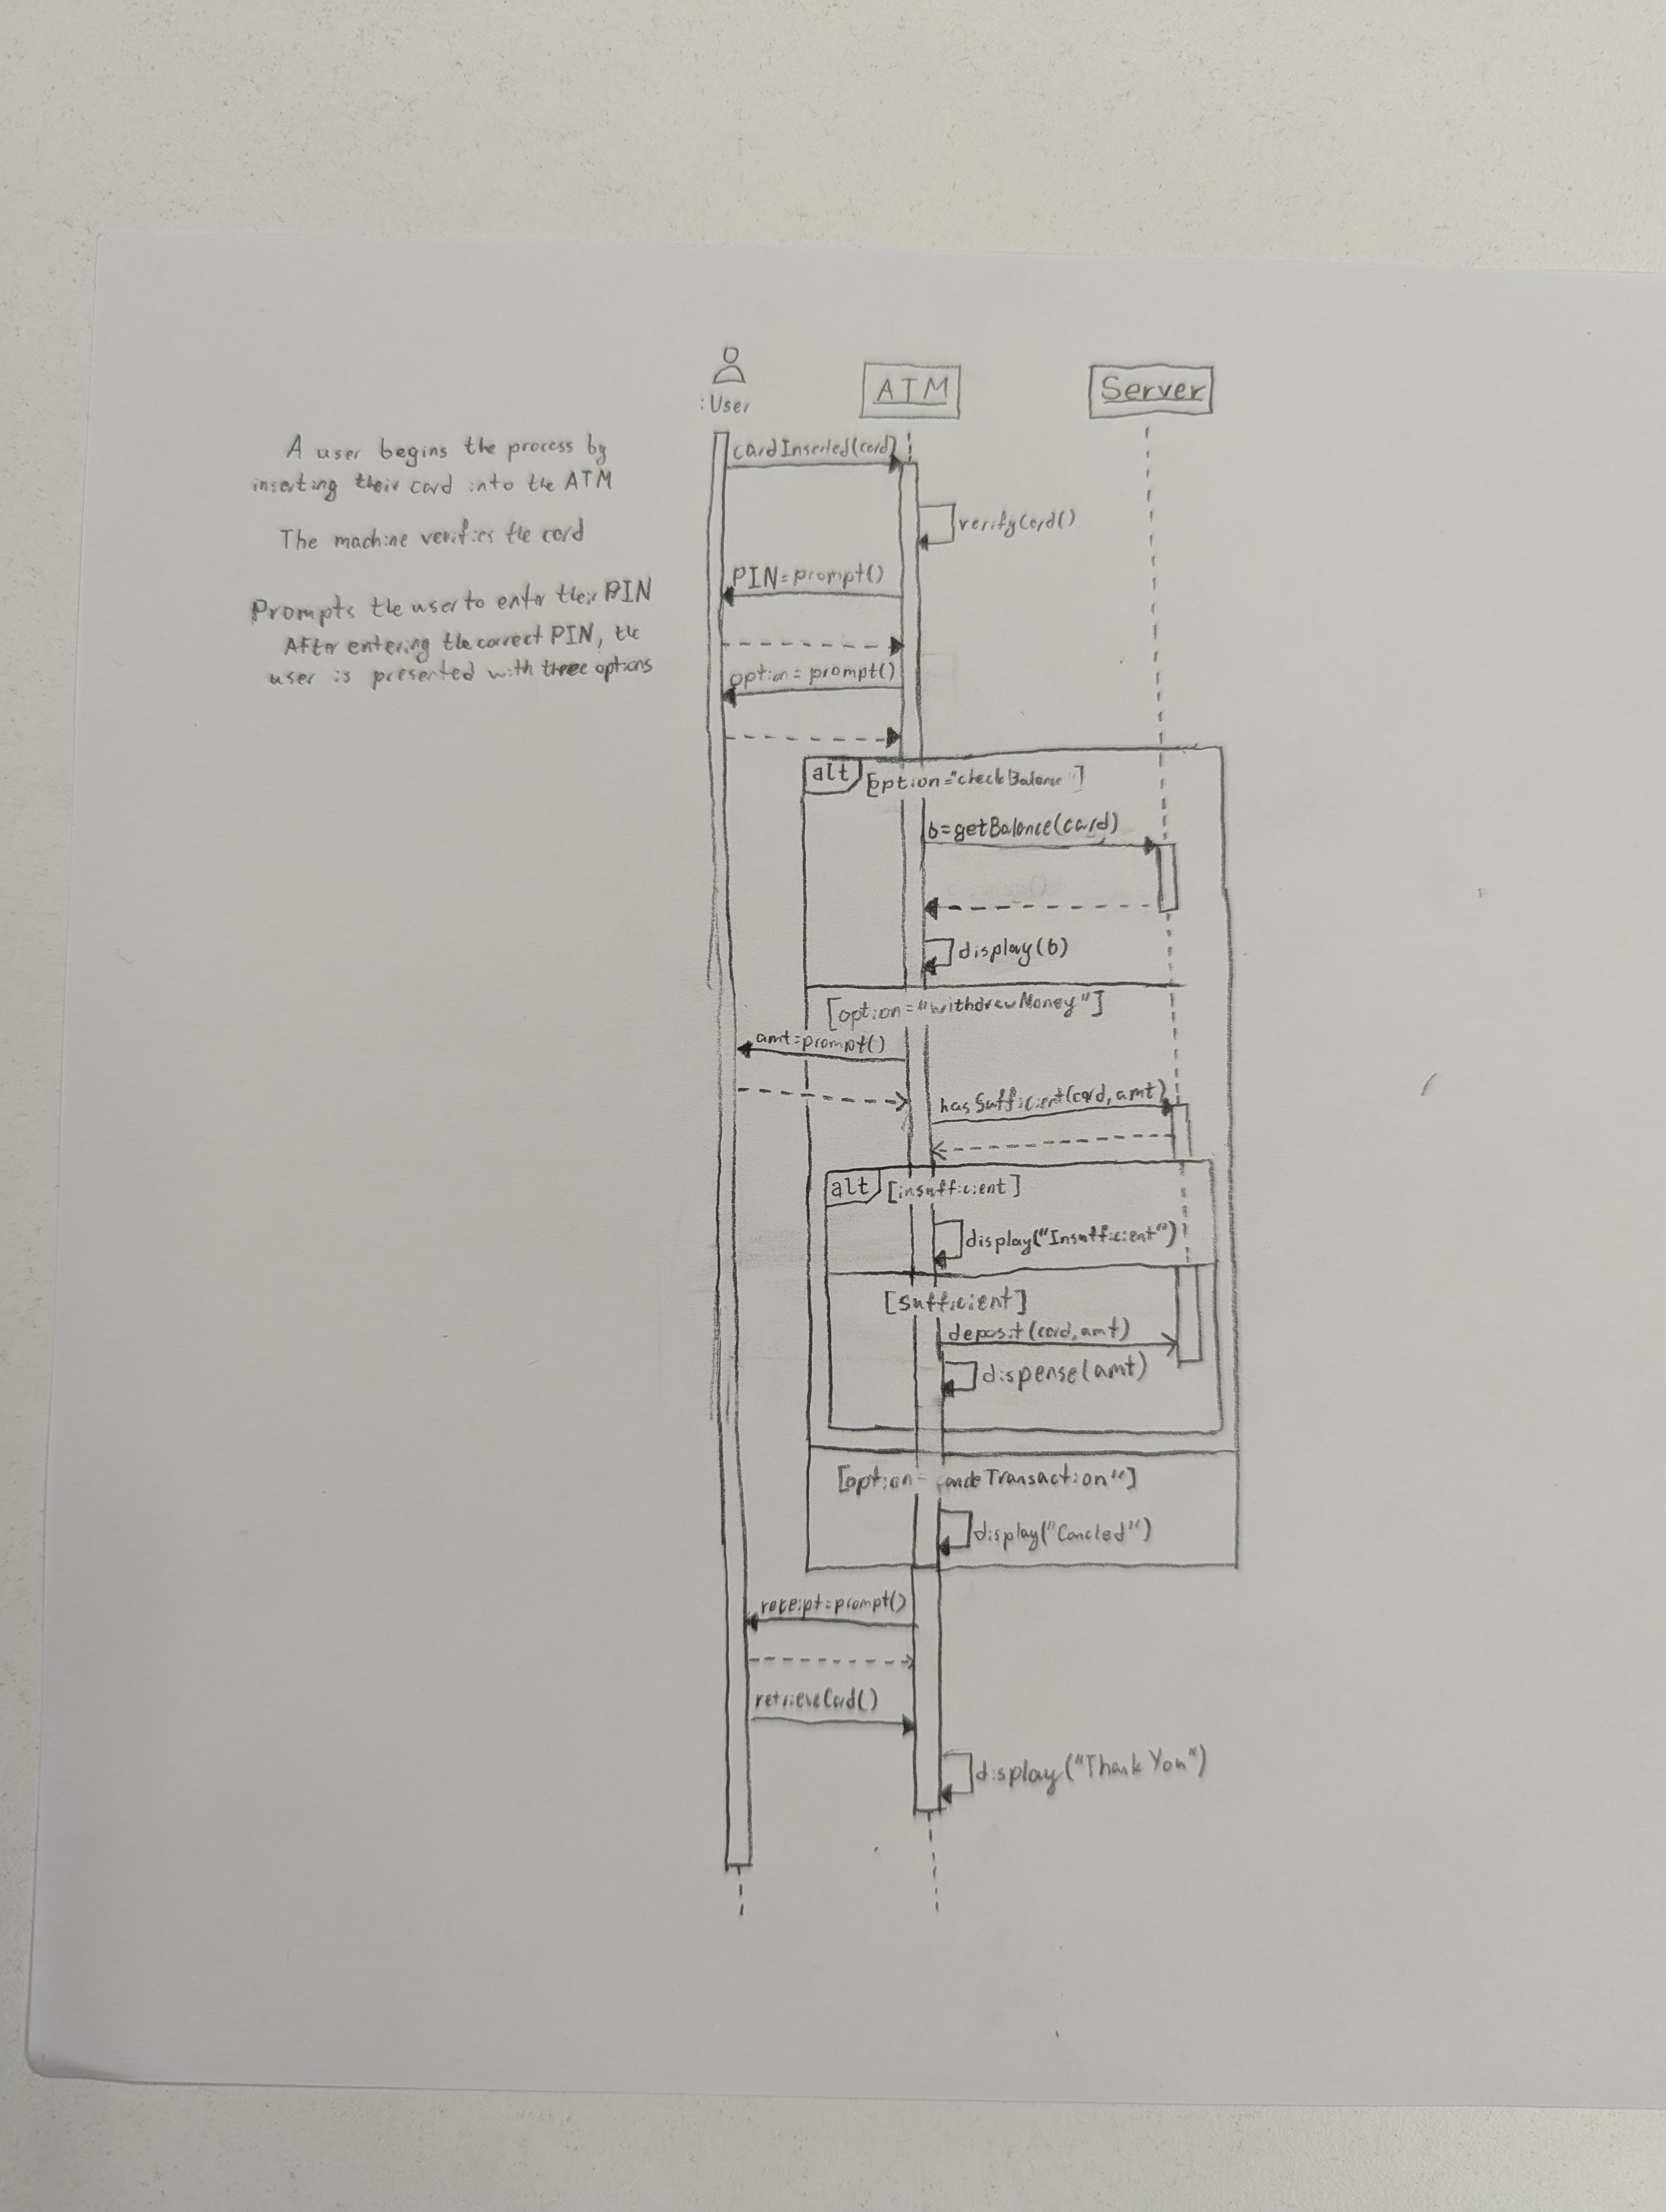 :User
ATM
Server
A user begins the process by
inserting their card into the ATM
The machine verifies the card
Prompts the user to enter their PIN
After entering the correct PIN, the
user is presented with three options
cardInserted(card)
verifyCard()
PIN=prompt()
option=prompt()
alt [option="checkBalance"]
b=getBalance(card)
display(b)
[option="withdrawMoney"]
amt=prompt()
hasSufficient(card,amt)
alt [insufficient]
display("Insufficient")
[sufficient]
deposit(card,amt)
dispense(amt)
[option= Transaction"]
display("Cancled")
receipt=prompt()
retrieveCard()
display("Thank You")